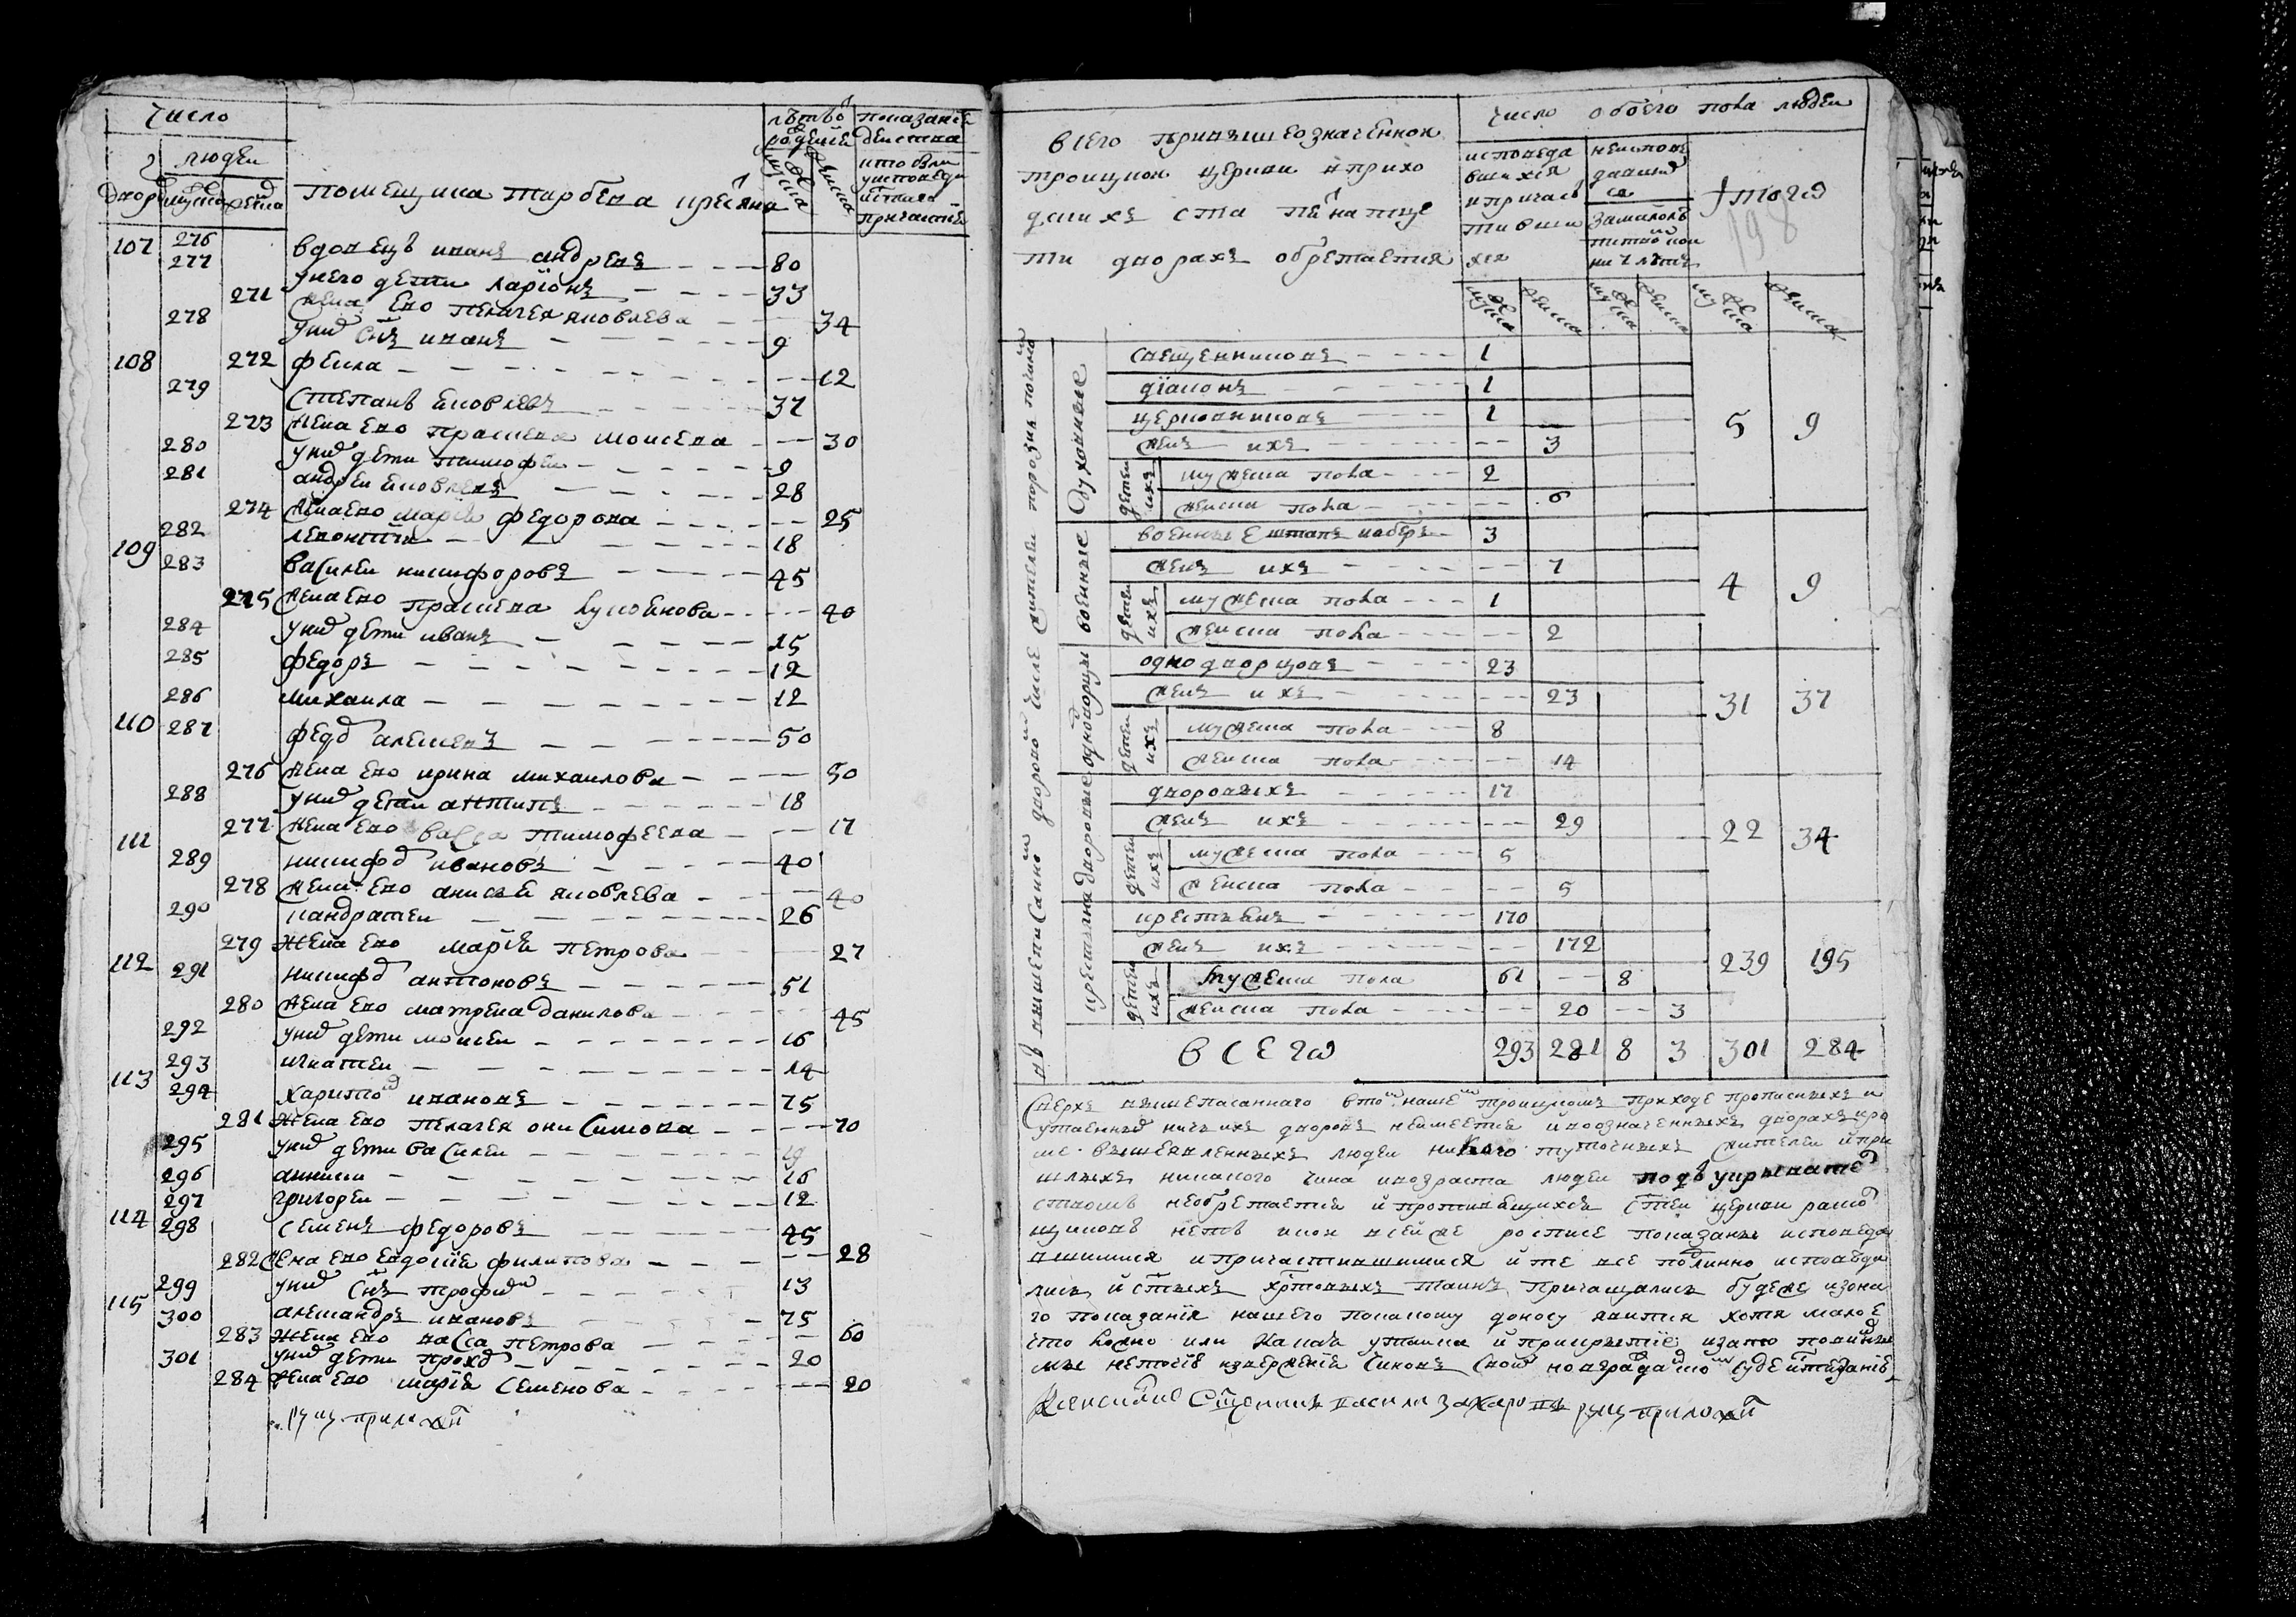 число
людей
дворов мужеска женска
помещика тарбеева крестьяне
лет во
роди
мужеска
женска
показание
действа
кто был
у исповеди
и святаго
причастия
107 276 вдовец иванъ андреевъ 80
277 у него дети ларионъ 33
271 жена ево пелагея яковлева 34
278 у них снъ иванъ 9
108 272 фекла 12
279 степанъ яковлевъ 37
273 жена ево прасковя моисеева 30
280 у них дети тимофеи 9
281 андреи яковлевъ 28
274 жена ево маря федорова 25
282 леонтии 18
109 283 василеи никифоровъ 45
275 жена ево прасковя 40
284 у них дети иванъ 15
285 федоръ 12
286 михаила 12
110 287 федо алексеевъ 50
276 жена ево ирина михаилова 50
288 у них дети антипъ 18
277 жена ево васса тимофеева 17
111 289 никифо ивановъ 40
278 жена ево анися яковлева 40
290 кандратеи 26
279 жена ево мария петрова 27
112 291 никифо антоновъ 51
280 жена ево матрена данилова 45
292 у них дети моисеи 16
293 игнатеи 14
113 294 харито ивановъ 75
281 жена ево пелагея онисимова 70
295 у них дети василеи 19
296 аникеи 16
297 григореи 12
114 298 семенъ федоровъ 45
282 жена ево евдокия филипова 28
299 у них снъ трофи 13
115 300 александръ ивановъ 75
283 жена ево васса петрова 60
301 у них дети прохо 20
284 жена ево мария семенова 20
руку приложил
всего при вышеозначеннои
троицкои церкви в прихо
дских ста пятнатце
ти дворахъ обретается
число обоего пола людеи
исповеда
вшихся
и причас
тивши
хся
неиспове
давших
ся
за малолѣ
итого
198
мужеска женска мужеска женска мужеска женска
духовные
священниковъ 1
диаконъ 1
церковниковъ 1
женъ ихъ 3
детеи ихъ
мужеска пола 2
женска пола 6
5 9
военные
военные 3
женъ ихъ 7
детеи ихъ
мужеска пола 1
женска пола 2
4 9
однодворцы
однодворцовъ 23
женъ ихъ 23
детеи ихъ
мужеска пола 8
женска пола 14
31 37
дворовые
дворовыхъ 17
женъ ихъ 29
детеи ихъ
мужеска пола 5
женска пола 5
22 34
крестьяня
крестьянъ 170
женъ ихъ 172
детеи ихъ
мужеска пола 61 8
женска пола 20 3
239 195
всегѡ 293 281 8 3 301 284
сверхъ вышеписаннаго в томъ нашемъ троицкомъ приходе прописныхъ и
утаенных ничьихъ дворовъ неимеется и в означенныхъ дворахъ кро
ме вышеявленныхъ людеи никого тутошныхъ жителеи и при
шлыхъ никакого чина и возраста людеи подъ укрывате
ствомъ необретается и противящихся стеи церкви раско
щиковъ нетъ и кои в сеи же росписе показаны исповеда
вшимися и причастившимися и те все подлинно исповеда
лись и стыхъ хрстовыхъ таинъ причащались буде же из она
го показания нашего по какому доносу явится хотя малое
что ложно или какая утаика и прикрытие и за то повинны
мы
священникъ василеи захаровъ руку приложил